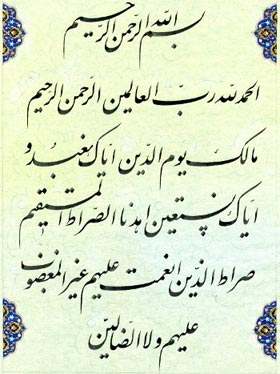 بسم الله الرحمن الرحیم
الحمدلله رب العالمین الرحمن الرحیم
مالک یوم الدین ایاک نعبد و
ایاک نستعین اهدنا الصراط المستقیم
صراط الذین انعمت علیهم غیر المغضوب
علیهم ولا الضالین